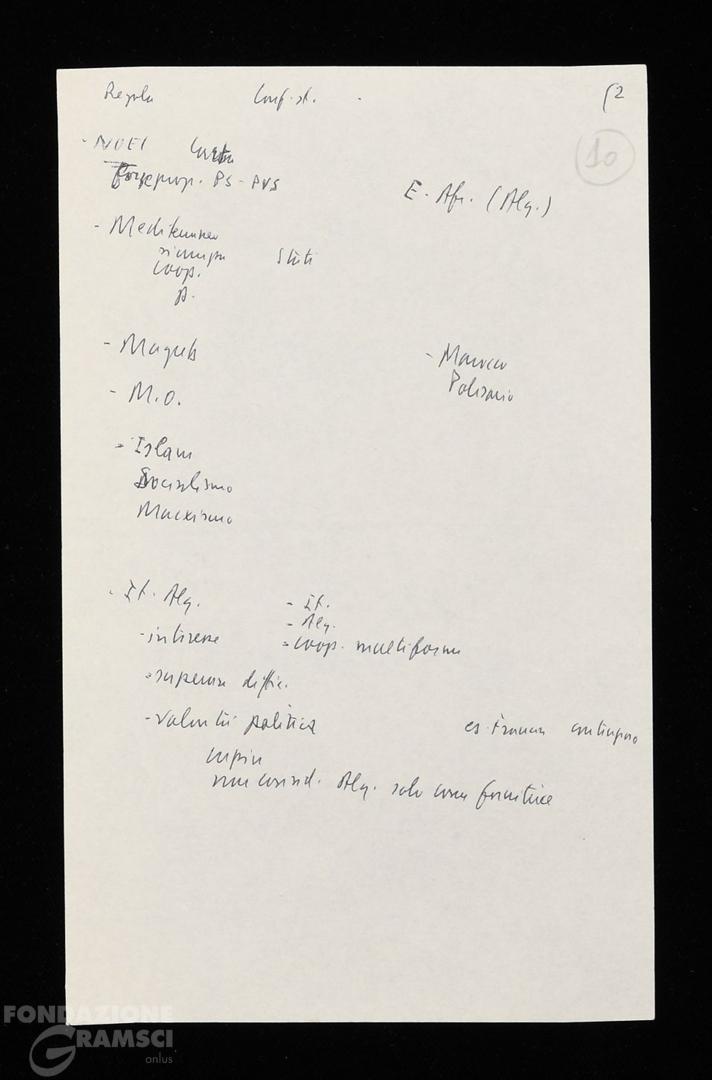 Regola Conf. st. - 52
10
- NOEI Carta
prop. PS - PVS
E. Afr. (Alg.)
- Mediterraneo
Stati
coop.
p.
- Magreb - Marocco
Polisario
- M.O.
- Islam
Socialismo
Marxismo
- It. Alg. - It.
- Alg.
- interesse - coop. multiforme
- superare diffic.
- volontà politica es. Transm. contin
capire
non consid. Alg. solo come fornitrice
FONDAZIONE
GRAMSCI
onlus